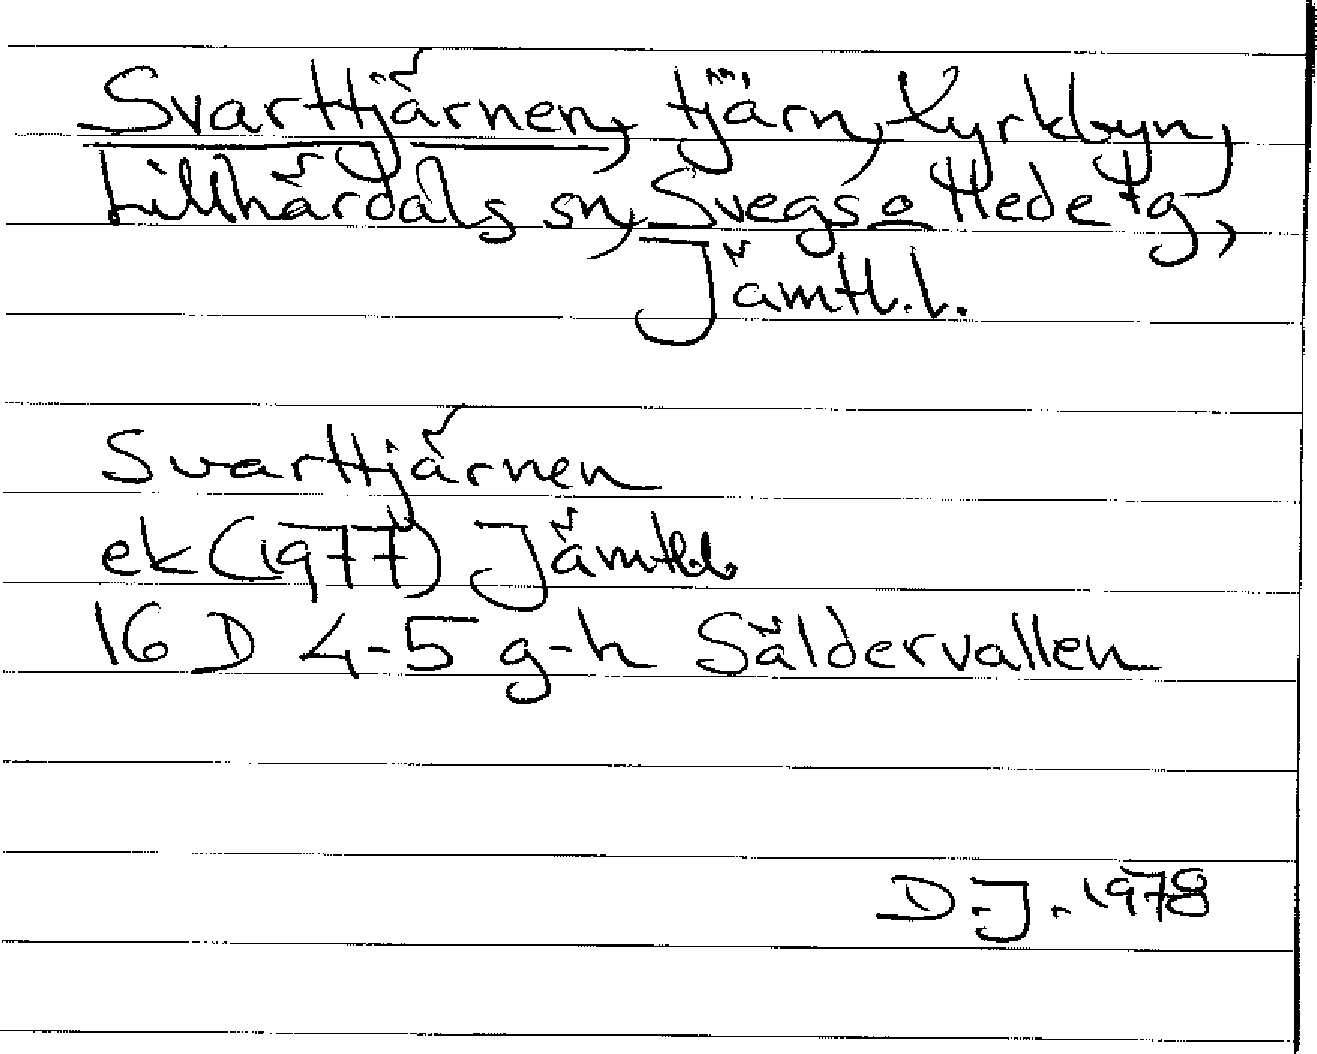 Svarttjärnen, tjärn, Kyrkbyn,
Lillhärdals sn, Svegs o Hede tg,
Jämtl.l.
Svarttjärnen
ek (1977) Jämtl.l.
16 D 4-5 g-h Säldervallen
D.J. 1978